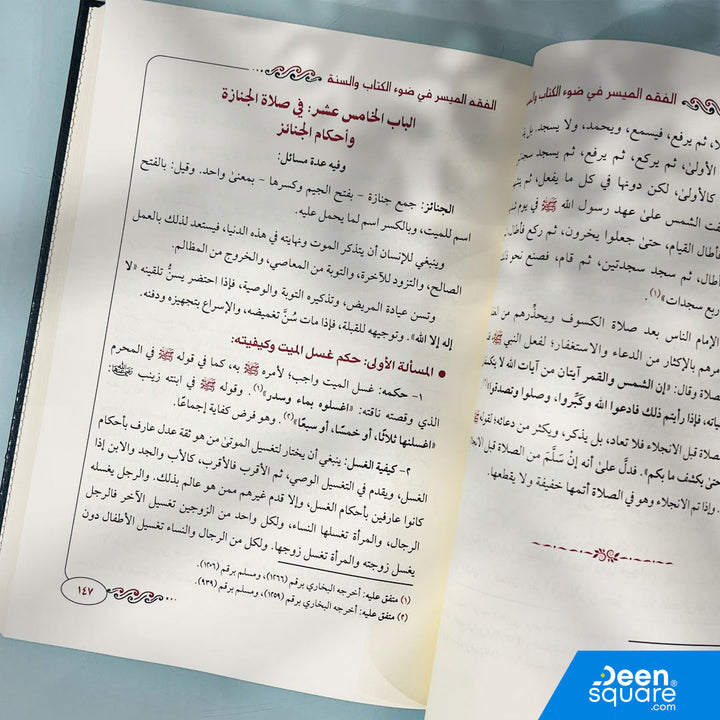 الفقه الميسر في ضوء الكتاب والسنة
لا، ثم يرفع، فيسمع، ويحمد، ولا يسجد. بل
الأولى، ثم يركع، ثم يرفع، ثم يسجد سجد
كالأولى، لكن دونها في كل ما يفعل، ثم
فت الشمس على عهد رسول الله ﷺ في يوم
فأطال القيام، حتى جعلوا يخرون، ثم ركع فأطال
طال، ثم سجد سجدتين، ثم قام، فصنع نحو
ربع سجدات»(١).
الإمام الناس بعد صلاة الكسوف ويحذرهم من
مرهم بالإكثار من الدعاء والاستغفار؛ لفعل النبي ﷺ
صلاة وقال: «إن الشمس والقمر آيتان من آيات الله لا
ياته، فإذا رأيتم ذلك فادعوا الله وكبِّروا، وصلوا وتصدقوا»
صلاة قبل الانجلاء فلا تعاد، بل يذكر، ويكثر من دعائه؛
حتى يكشف ما بكم». فدلَّ على أنه إنْ سلَّمَ من الصلاة قبل
. وإذا تم الانجلاء وهو في الصلاة أتمها خفيفة ولا يقطعها.
الفقه الميسر في ضوء الكتاب والسنة
الباب الخامس عشر: في صلاة الجنازة
وأحكام الجنائز
وفيه عدة مسائل:
الجنائز: جمع جنازة - بفتح الجيم وكسرها - بمعنى واحد. وقيل: بالفتح
اسم للميت، وبالكسر اسم لما يحمل عليه.
وينبغي للإنسان أن يتذكر الموت ونهايته في هذه الدنيا، فيستعد لذلك بالعمل
الصالح، والتزود للآخرة، والتوبة من المعاصي، والخروج من المظالم.
وتسن عيادة المريض، وتذكيره التوبة والوصية، فإذا احتضر يسنُّ تلقينه «لا
إله إلا الله». وتوجيهه للقبلة، فإذا مات سُنَّ تغميضه، والإسراع بتجهيزه ودفنه.
● المسألة الأولى: حكم غسل الميت وكيفيته:
١- حكمه: غسل الميت واجب؛ لأمره ﷺ به، كما في قوله ﷺ في المحرم
الذي وقصته ناقته: «اغسلوه بماء وسدر»(١). وقوله ﷺ في ابنته زينب :
«اغسلنها ثلاثًا، أو خمسًا، أو سبعًا»(٢). وهو فرض كفاية إجماعًا.
٢- كيفية الغسل: ينبغي أن يختار لتغسيل الموتى من هو ثقة عدل عارف بأحكام
الغسل، ويقدم في التغسيل الوصي، ثم الأقرب فالأقرب، كالأب والجد والابن إذا
كانوا عارفين بأحكام الغسل، وإلا قدم غيرهم ممن هو عالم بذلك. والرجل يغسله
الرجال، والمرأة تغسلها النساء، ولكل واحد من الزوجين تغسيل الآخر فالرجل
يغسل زوجته والمرأة تغسل زوجها. ولكل من الرجال والنساء تغسيل الأطفال دون
(١) متفق عليه: أخرجه البخاري برقم (١٢٦٦)، ومسلم برقم (١٢٠٦).
(٢) متفق عليه: أخرجه البخاري برقم (١٢٥٩)، ومسلم برقم (٩٣٩).
١٤٧
Deen
square®
.com